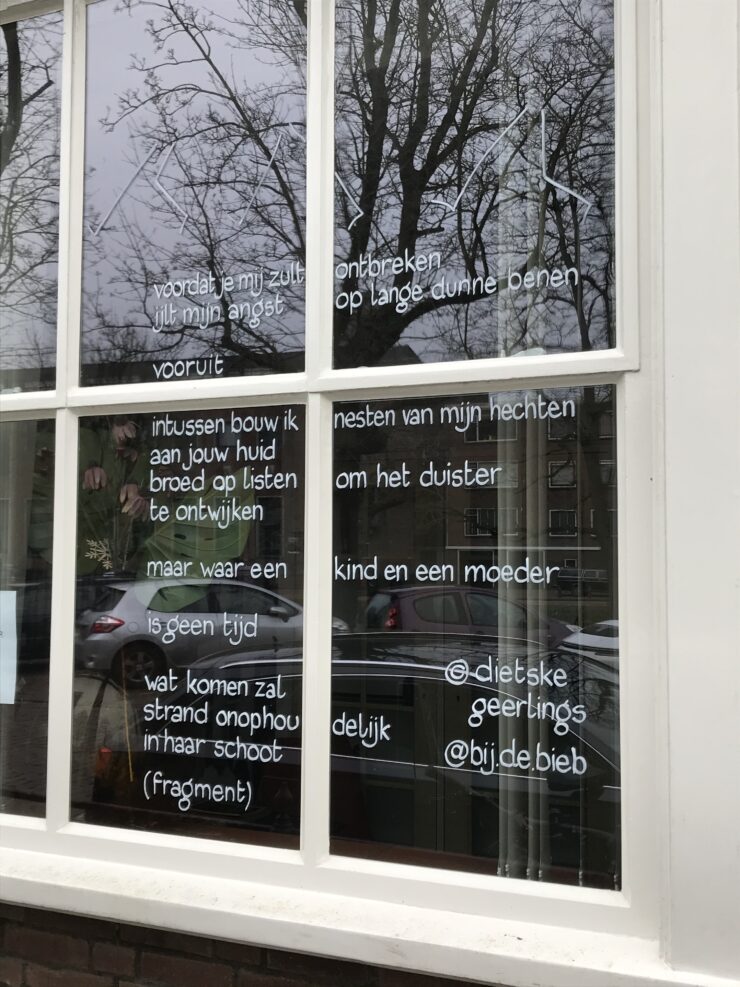 voordat je mij zult ontbreken
ijlt mijn angst op lange dunne benen
vooruit
intussen bouw ik nesten van mijn hechten
aan jouw huid
broed op listen om het duister
te ontwijken
maar waar een kind en een moeder
is geen tijd
wat komen zal
strand onophoudelijk
in haar schoot
(fragment)
© dietske
geerlings
@bij.de.bieb